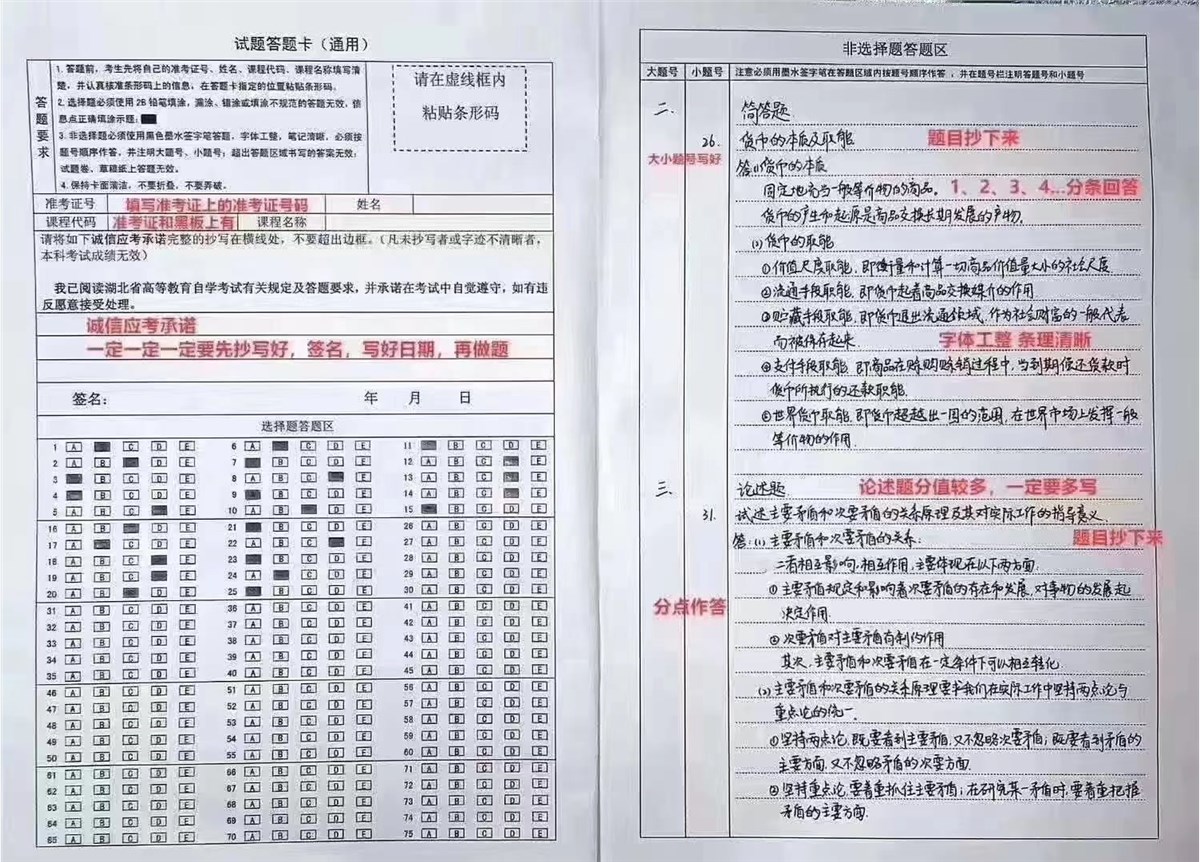 试题答题卡（通用）
答题要求
1. 答题前，考生先将自己的准考证号、姓名、课程代码、课程名称填写清
楚，并认真核准条形码上的信息，在答题卡指定的位置粘贴条形码。
2. 选择题必须使用2B铅笔填涂，漏涂、错涂或填涂不规范的答题无效，信
息点正确填涂示题：
3. 非选择题必须使用黑色墨水签字笔答题，字体工整，笔记清晰，必须按
题号顺序作答，并注明大题号、小题号；超出答题区域书写的答案无效；
试题卷、草稿纸上答题无效。
4. 保持卡面清洁，不要折叠，不要弄破。
请在虚线框内
粘贴条形码
准考证号 填写准考证上的准考证号码 姓名
课程代码 准考证和黑板上有 课程名称
请将如下诚信应考承诺完整的抄写在横线处，不要超出边框。（凡未抄写者或字迹不清晰者，
本科考试成绩无效）
我已阅读湖北省高等教育自学考试有关规定及答题要求，并承诺在考试中自觉遵守，如有违
反愿意接受处理。
诚信应考承诺
一定一定一定要先抄写好，签名，写好日期，再做题
签名： 年 月 日
选择题答题区
1 A C D E 6 A C D E 11 B C D E
2 A B D E 7 B C D E 12 A B C E
3 B C D E 8 A B C E 13 A B C E
4 B C D E 9 B C D E 14 A B C E
5 A B C E 10 A B D E 15 B C D E
16 A B D E 21 B C D E 26 A B C D E
17 A C D E 22 A B C E 27 A B C D E
18 A B C E 23 B C D E 28 A B C D E
19 A B C E 24 A C D E 29 A B C D E
20 A B D E 25 B C D E 30 A B C D E
31 A B C D E 36 A B C D E 41 A B C D E
32 A B C D E 37 A B C D E 42 A B C D E
33 A B C D E 38 A B C D E 43 A B C D E
34 A B C D E 39 A B C D E 44 A B C D E
35 A B C D E 40 A B C D E 45 A B C D E
46 A B C D E 51 A B C D E 56 A B C D E
47 A B C D E 52 A B C D E 57 A B C D E
48 A B C D E 53 A B C D E 58 A B C D E
49 A B C D E 54 A B C D E 59 A B C D E
50 A B C D E 55 A B C D E 60 A B C D E
61 A B C D E 66 A B C D E 71 A B C D E
62 A B C D E 67 A B C D E 72 A B C D E
63 A B C D E 68 A B C D E 73 A B C D E
64 A B C D E 69 A B C D E 74 A B C D E
65 A B C D E 70 A B C D E 75 A B C D E
非选择题答题区
大题号 小题号 注意必须用墨水签字笔在答题区域内按题号顺序作答，并在题号栏注明答题号和小题号
二. 简答题
26. 货币的本质及职能 题目抄下来
大小题号写好
答:(1)货币的本质
固定地充当一般等价物的商品。 1、2、3、4...分条回答
货币的产生和起源是商品交换长期发展的产物.
(2)货币的职能
①价值尺度职能，即衡量和计算一切商品价值量大小的社会尺度
②流通手段职能，即货币起着商品交换媒介的作用
③贮藏手段职能，即货币退出流通领域，作为社会财富的一般代表
而被保存起来. 字体工整 条理清晰
④支付手段职能，即商品在赊购赊销过程中，当到期偿还货款时
货币所执行的还款职能.
⑤世界货币职能，即货币超越出一国的范围，在世界市场上发挥一般
等价物的作用.
三. 论述题 论述题分值较多，一定要多写
31. 试述主要矛盾和次要矛盾的关系原理及其对实际工作的指导意义.
答:(1)主要矛盾和次要矛盾的关系. 题目抄下来
二者相互影响，相互作用，主要体现在以下两方面:
分点作答
①主要矛盾规定和影响着次要矛盾的存在和发展，对事物的发展起
决定作用.
②次要矛盾对主要矛盾有制约作用
其次，主要矛盾和次要矛盾在一定条件下可以相互转化.
(2)主要矛盾和次要矛盾的关系原理要求我们在实际工作中坚持两点论与
重点论的统一.
①坚持两点论，既要看到主要矛盾，又不忽略次要矛盾；既要看到矛盾的
主要方面，又不忽略矛盾的次要方面.
②坚持重点论，要着重抓住主要矛盾；在研究某一矛盾时，要着重把握
矛盾的主要方面.